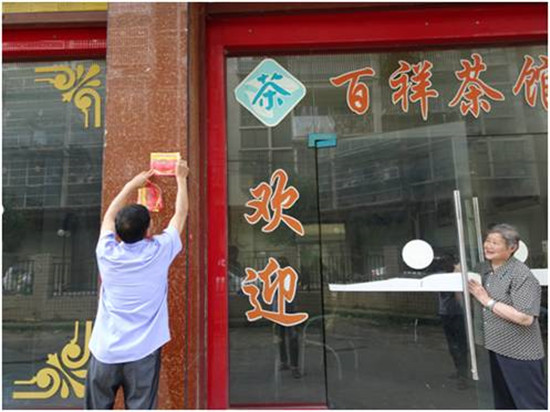 茶 百祥茶馆
欢
迎